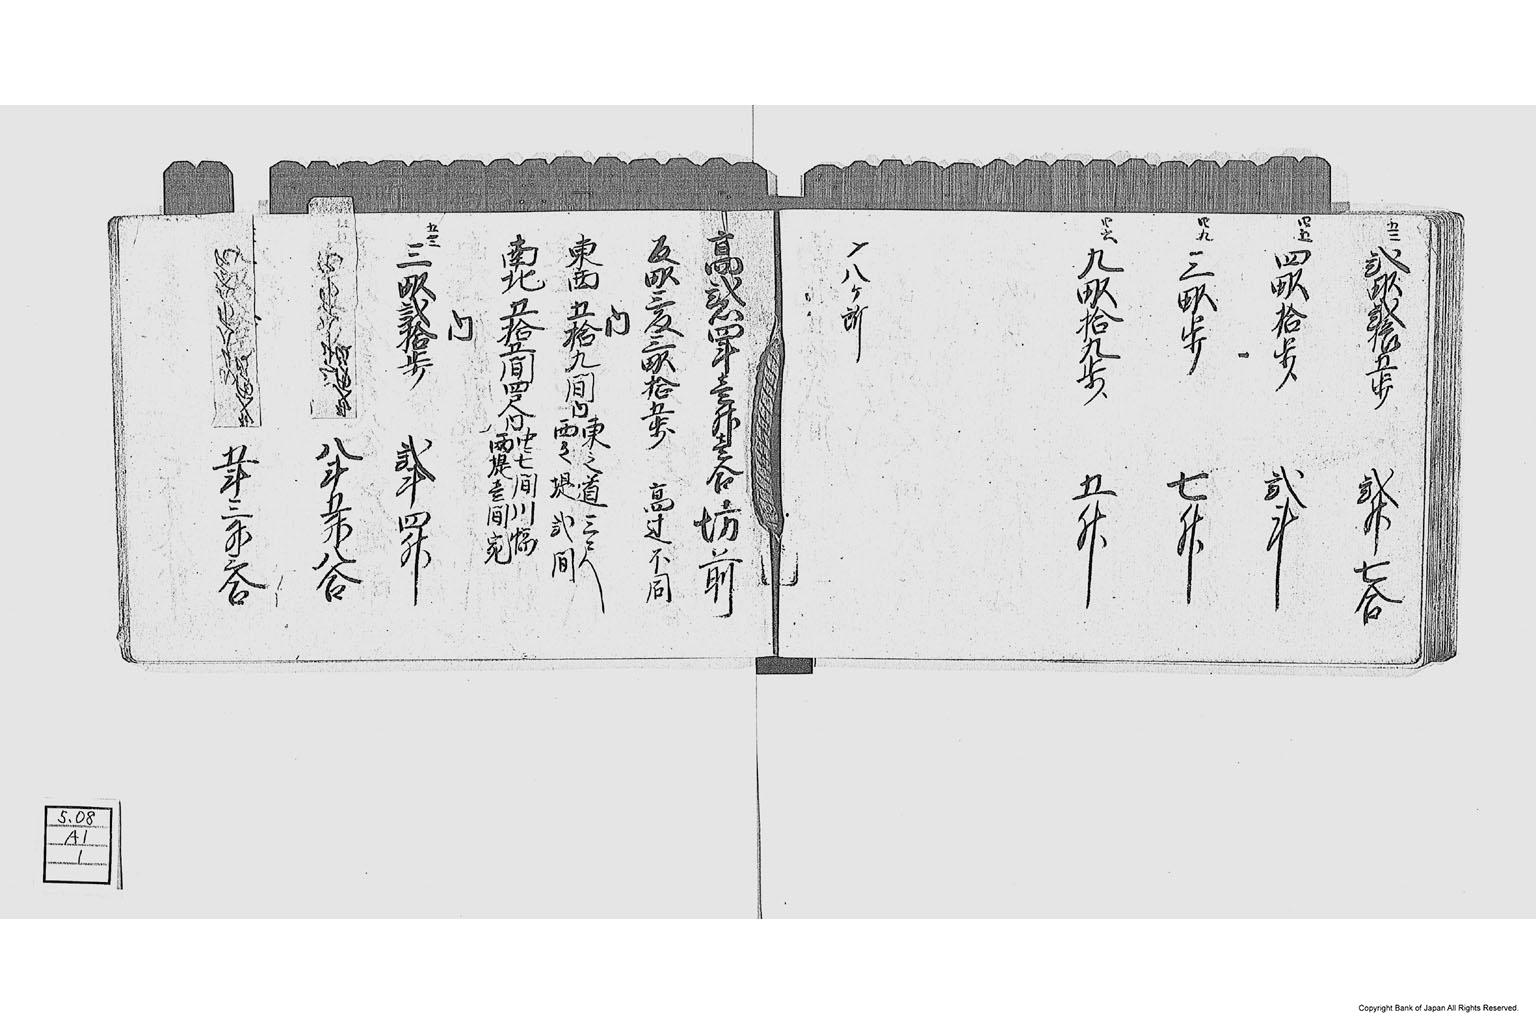 五二
弐畝弐拾五歩 弐升七合
四五
四畝拾歩 弐斗
四九
三畝歩 七升
四六
九畝拾九歩 五升
〆八ケ所
高弐石四斗壱升壱合 坊前
反畝三反三畝拾五歩 高辻不同
内
東西 五拾九間内 東之道三尺
西之堤弐間
南北 五拾五間四尺内 中七間川幅
両堤壱間宛
内
五三
三畝弐拾歩 弐斗四升
八斗五升八合
五斗三升六合
5.08
A1
1
Copyright Bank of Japan All Rights Reserved.